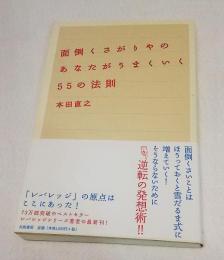 面倒くさがりやの
あなたがうまくいく
55の法則
本田直之
面倒くさいことは
ほうっておくと雪だるま式に
増えていく!
そうならないために
逆転の発想術!!
「レバレッジ」の原点は
ここにあった!
レバレッジシリーズ著者の最新刊!
大和書房